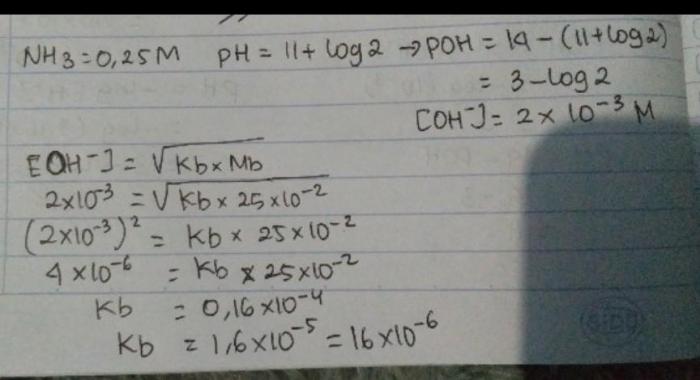 NH3 = 0,25 M pH = 11 + log 2 → pOH = 14 - (11 + log 2)
= 3 - log 2
[OH⁻] = 2 × 10⁻³ M
[OH⁻] = √Kb × Mb
2×10⁻³ = √Kb × 25 × 10⁻²
(2×10⁻³)² = Kb × 25 × 10⁻²
4 × 10⁻⁶ = Kb × 25 × 10⁻²
Kb = 0,16 × 10⁻⁴
Kb = 1,6 × 10⁻⁵ = 16 × 10⁻⁶
SIDU